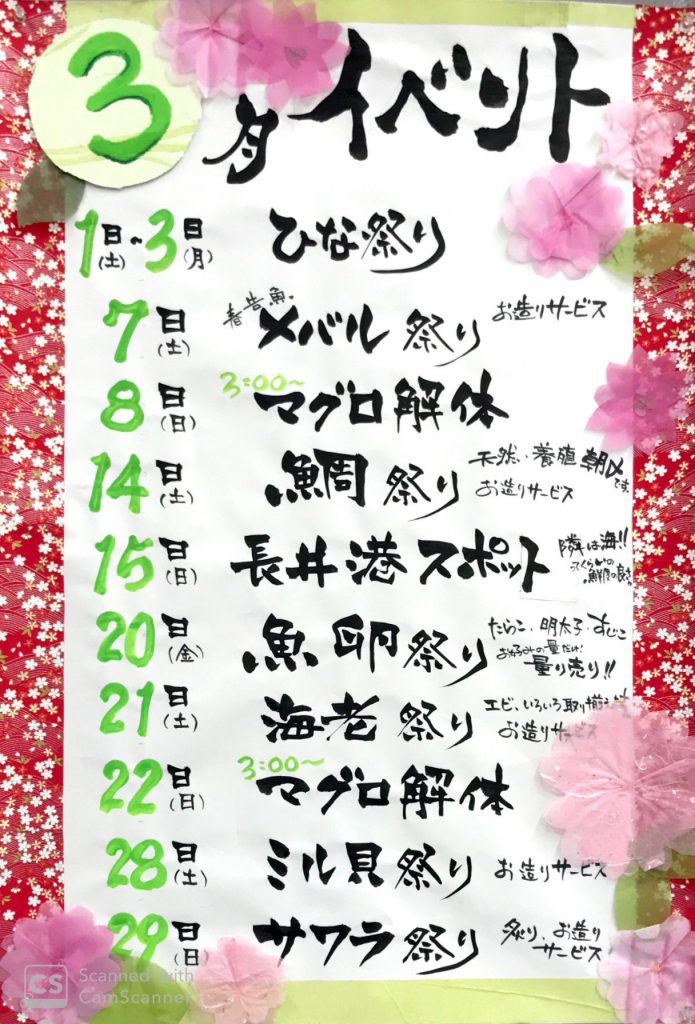 3月イベント
1日(土)~3日(月) ひな祭り
7日(土) 春告魚 メバル祭り お造りサービス
8日(日) 3:00~ マグロ解体
14日(土) 鯛祭り 天然・養殖 朝〆です。
お造りサービス
15日(日) 長井港スポット 隣は海!!
ってくらいの
鮮度の良さ
20日(金) 魚卵祭り たらこ・明太子・すじこ
お好みの量だけ!
量り売り!!
21日(土) 海老祭り エビ、いろいろ取り揃え
お造りサービス
22日(日) 3:00~ マグロ解体
28日(土) ミル貝祭り お造りサービス
29日(日) サワラ祭り 炙り、お造り
サービス
CS Scanned with
CamScanner